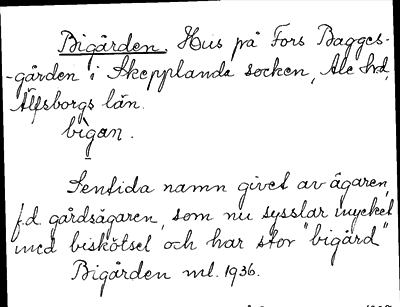 Bigården. Hus på Fors Bagges-
-gården i Skepplanda socken, Ale hd,
Älfsborgs län.
bigan.
Sentida namn givet av ägaren,
f.d. gårdsägaren, som nu sysslar mycket
med biskötsel och har stor "bigård"
Bigården ml. 1936.